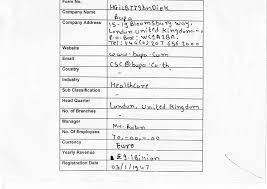 Form No.
HGisB779AnDieK
Company Name
Bupa
Company Address
15-19 Bloomsbury way,
London United Kingdom -
P.o.Box: WC1A2BA.
Tel: +44(0)207 656 2000
Website
www.bupa.com
Email
CSC@bupa.co.th
Country
Industry
Healthcare
Sub Classification
Head Quarter
London, United Kingdom
No. of Branches
Manager
Mr. Robin
No. Of Employees
70,-00,=00
Currency
Euro
Yearly Revenue
£9.1 Billion
Registration Date
03/1947